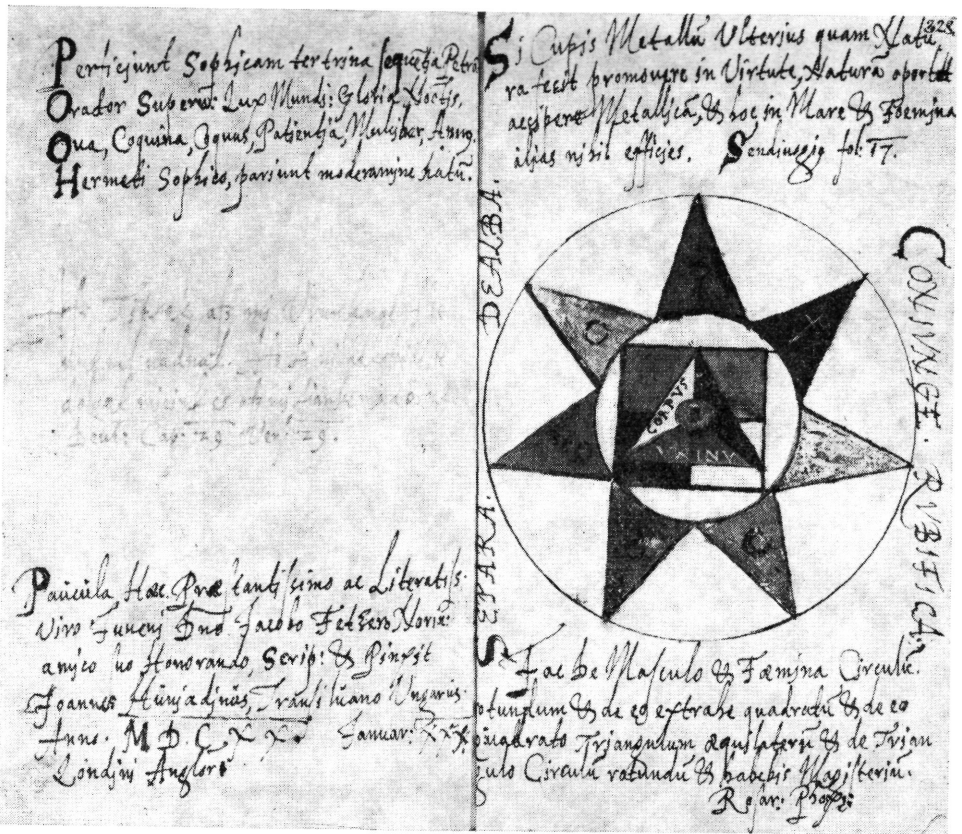 Perficiunt Sophicam ter trina sequētia Petrā
Orator Superūm: Lux Mundi: Gloria Noctis,
Ova, Coquina, Coquus, Patientia, Mulciber, Anny.
Hermeti Sophico, pariunt moderamine natū.
Deut: Cap: 29 Ver: 29.
Paucula Hæc Præstantissimo ac Literatiss:
Viro Iuveni Dno. Jacobo Fetzero Norim:
amico suo Honorando, Scrip: & Pinxit
Joannes Huniadinus, Transiluano Ungarus.
Anno. M. D. C. X X. Januar: XXX
Londini Anglor:
328
Si Cupis Metallū Vlterius quam Natu
ra fecit promovere in Virtute, Naturā oportet
accipere Metallicā, & hoc in Mare & Foemina
alias nihil efficies. Sendiuogio fol: 17.
SEPARA. DEALBA.
CONIVNGE. RVBIFICA
CORPVS
Fac de Masculo & Fæmina Circulū.
rotundum & de eo extrahe quadratū & de eo
quadrato Triangulum æquilaterū & de Trian
gulo Circulū rotundū & habebis Magisteriu.
Rosar: Pho: